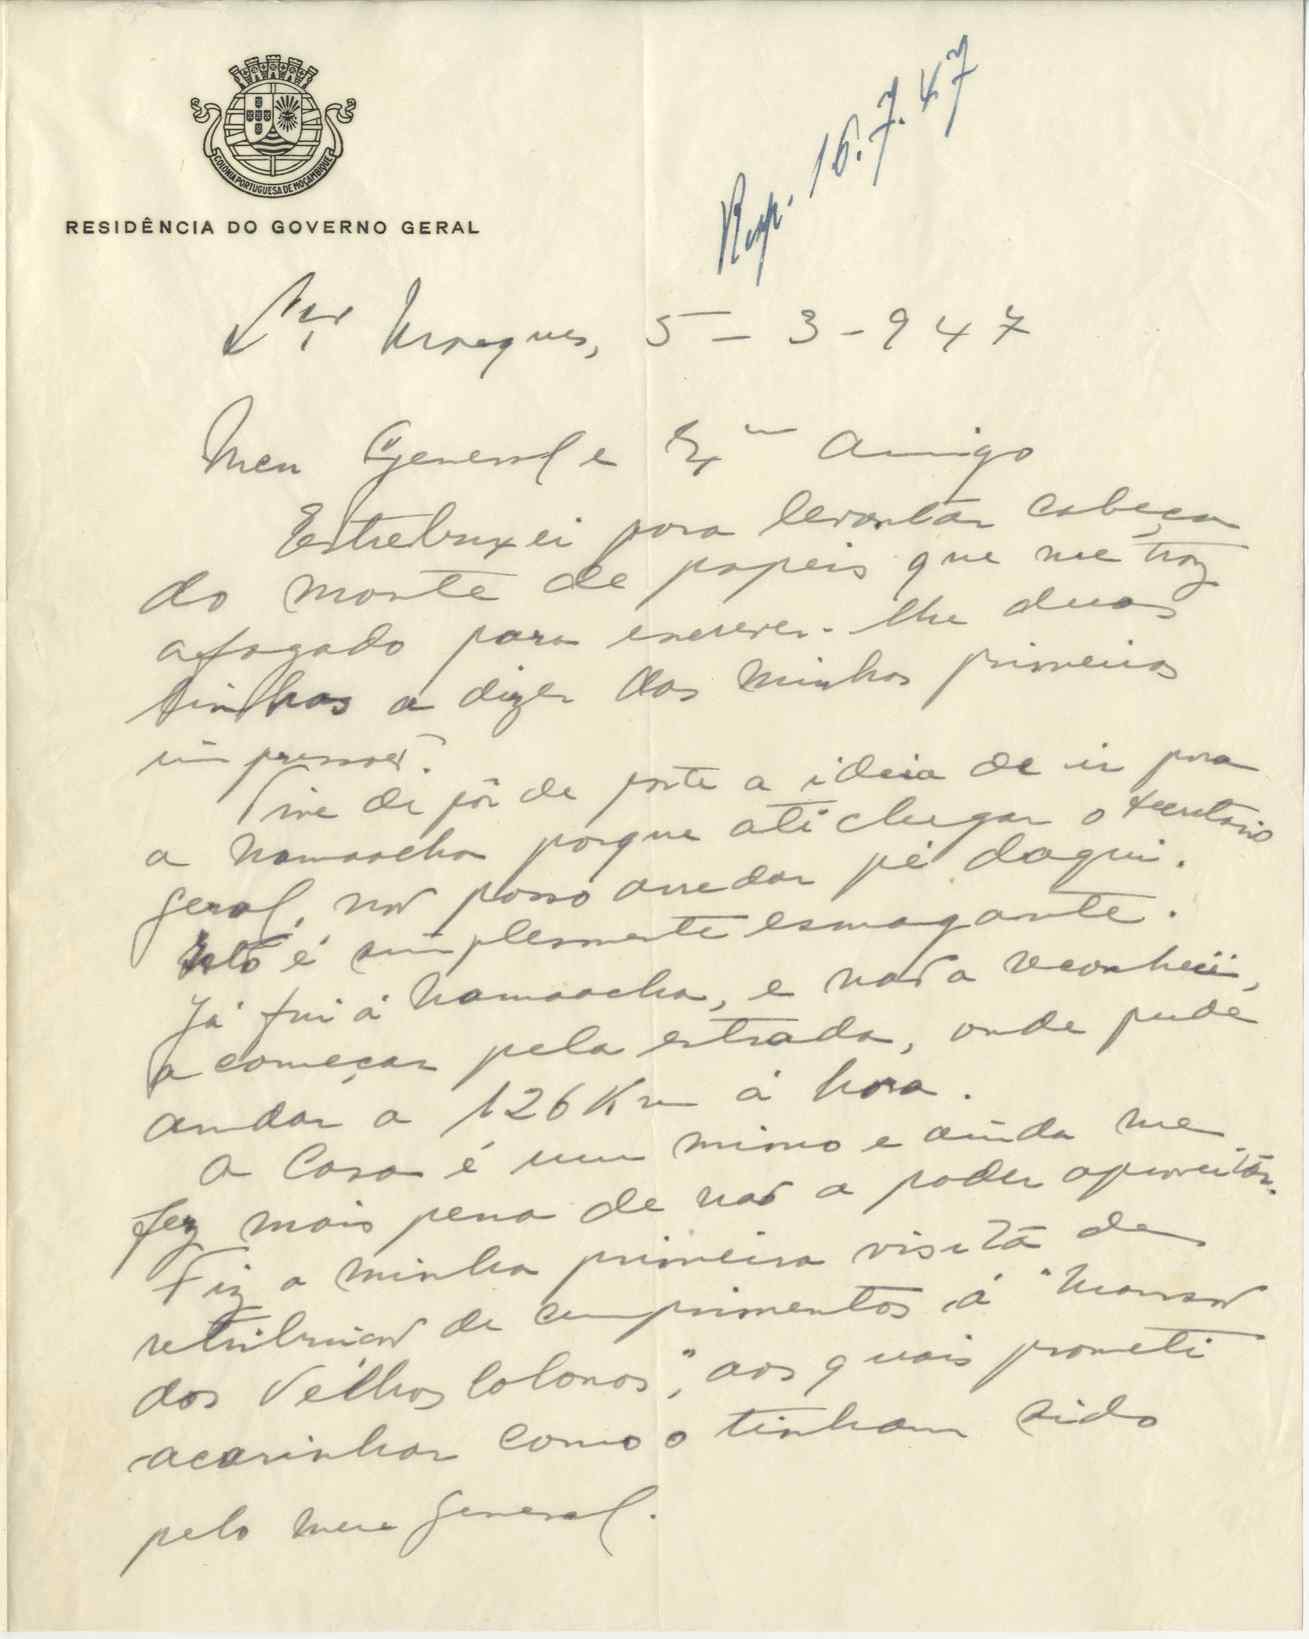 COLONIA PORTUGUESA DE MOÇAMBIQUE
RESIDÊNCIA DO GOVERNO GERAL
Resp. 16.7.47
Lço Marques, 5-3-947
Meu General e Exmo Amigo
Estrebuxei para levantar cabeça
do monte de papeis que me traz
afogado para escrever-lhe duas
linhas a dizer das minhas primeiras
impressões.
Tive de pôr de parte a ideia de ir para
a Namaacha porque até chegar o Secretario
Geral, não posso arredar pé daqui.
Isto é simplesmente esmagante.
Já fui á Namaacha, e não a reconheci,
a começar pela estrada, onde pude
andar a 126 Km á hora.
A Casa é um mimo e ainda me
fez mais pena de não a poder aproveitar.
Fiz a minha primeira visita de
retribuição de cumprimentos á "Mansão
dos Velhos Colonos", aos quais prometi
acarinhar como o tinham sido
pelo meu General.